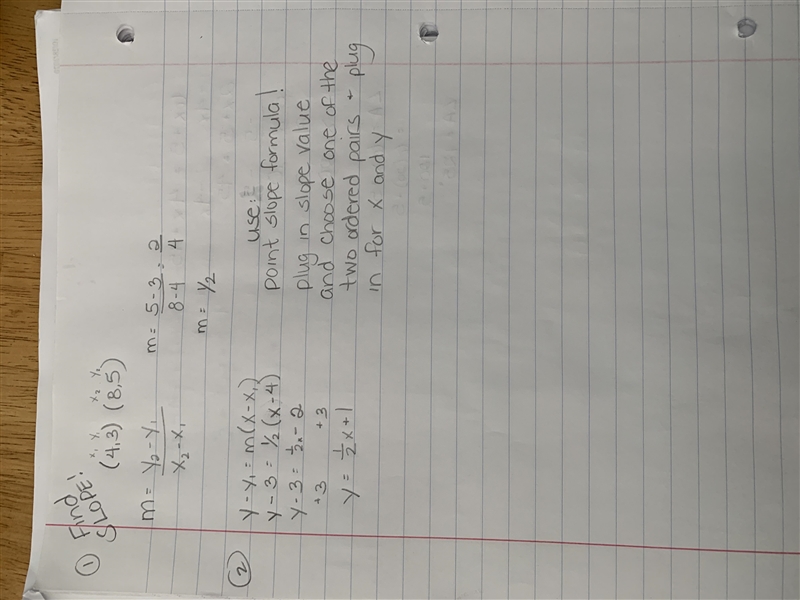 ① Find
SLOPE!
x₁ y₁ x₂ y₂
(4,3) (8,5)
m = y₂ - y₁ / x₂ - x₁
m = 5-3 / 8-4 = 2 / 4
m = 1/2
② y - y₁ = m(x - x₁)
y - 3 = 1/2 (x - 4)
y - 3 = 1/2x - 2
+3 +3
y = 1/2x + 1
use:
point slope formula!
plug in slope value
and choose one of the
two ordered pairs + plug
in for x and y